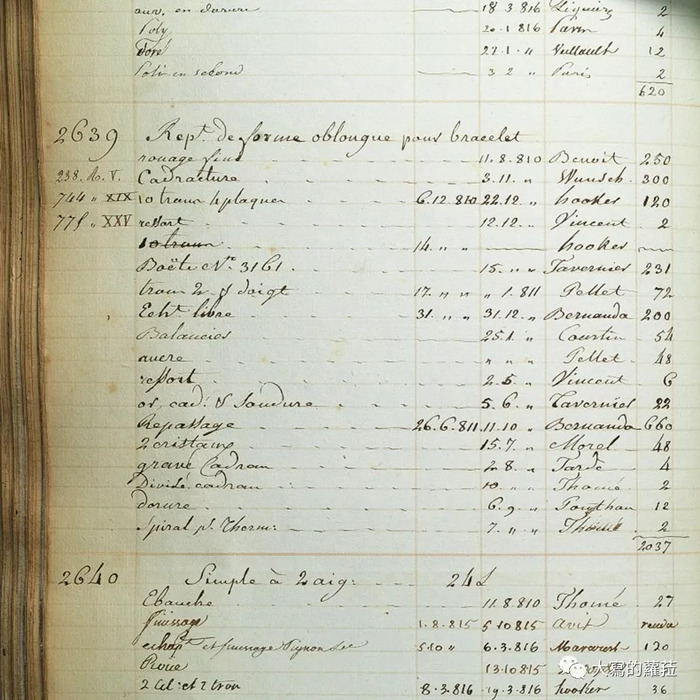 aux. en dorure 18 3 816 2
Poly 20 1 816 4
Doré 22 1 〃 12
Poli en second 3 2 〃 Paris 2
620
2639 Rept. de forme oblongue pour bracelet
rouage fini 11. 8. 810 Benoit 250
238. R. V. Cadracture 3. 11. 〃 Wunsch 300
744 〃 XIX 10 trous 4 plaques 6. 12. 810 22. 12. 〃 hooker 120
775 〃 XXV ressort 12. 12. 〃 Vincent 2
10 trous 14. 〃 〃 hooker
Boëte No. 3161. 15. 〃 〃 Tavernier 231
trou 2 doigt 17. 〃 〃 〃 1. 811 Pellet 72
Echt. libre 31. 〃 〃 31. 12. 〃 Bernauda 200
Balancier 25. 1. 〃 Courtin 54
〃 〃 〃 Pellet 48
ressort 2. 5. 〃 Vincent 6
or, cad: & Soudure 5. 6. 〃 Tavernier 22
Repassage 26. 6. 811. 11. 10 〃 Bernauda 660
2 cristaux 15. 7. 〃 Morel 48
gravé Cadran 2. 8. 〃 Tarde 4
Divisé cadran 10. 〃 〃 Thomé 2
dorure 6. 9. 〃 12
Spiral pr. Therm: 7. 〃 〃 Thomé 2
2037
2640 Simple à 2 aig: 24 L
Ebauche 11. 8. 810 Thomé 27
finissage 1. 8. 815 5 10 815
echapt. et finissage Pignon Sec 5 10 〃 6. 3. 816 120
Roue 13 10 815
2 Cil: et 2 trou 8. 3. 816 19. 3. 816 hooker 36
大雾的蘿菈